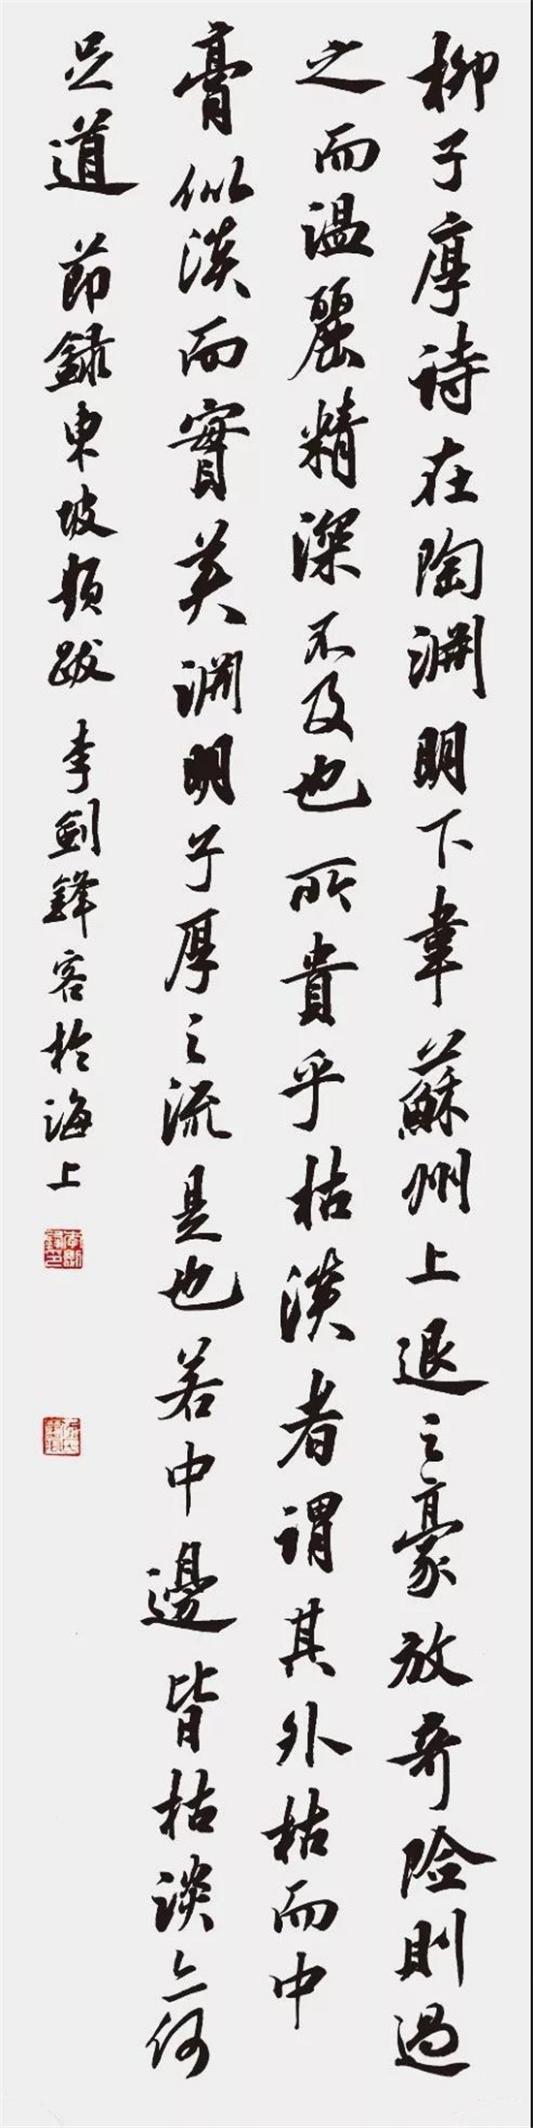 柳子厚詩在陶淵明下韋蘇州上退之豪放奇險則過
之而温麗精深不及也所貴乎枯淡者謂其外枯而中
膏似淡而實美淵明子厚之流是也若中邊皆枯淡亦何
足道 節録東坡題跋 李劍鋒客於海上